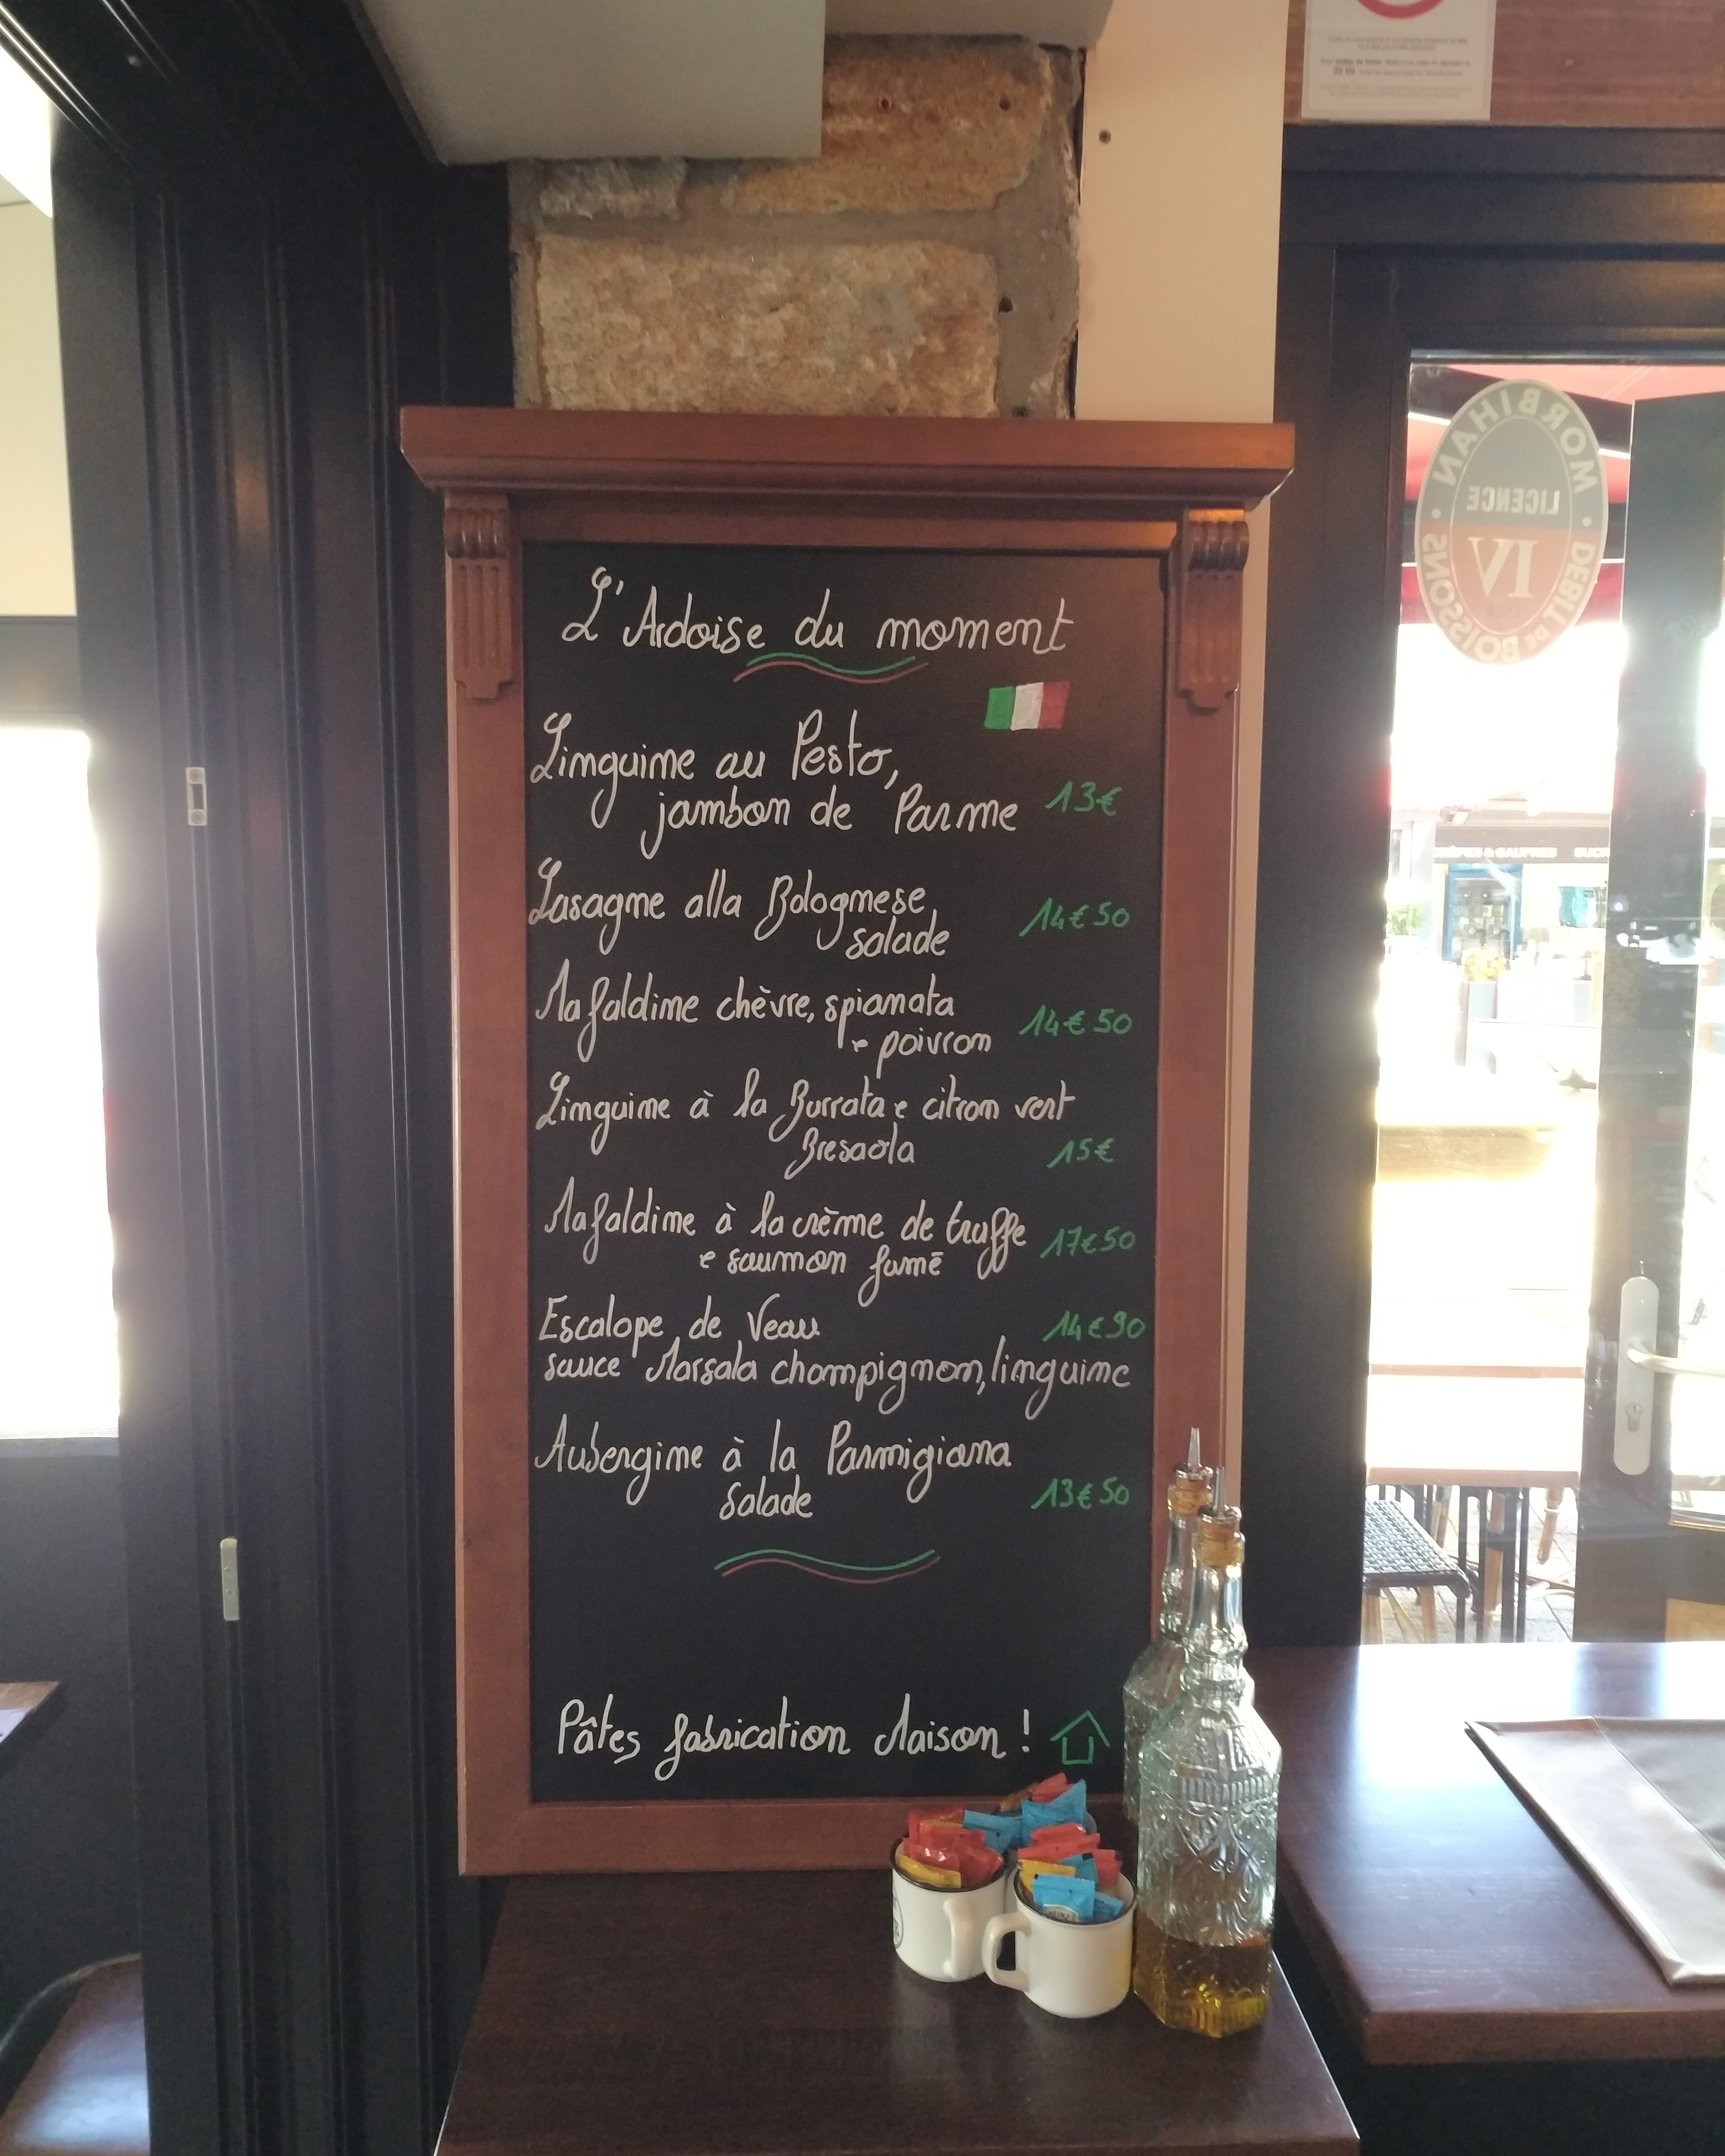 L'Ardoise du moment
Linguine au Pesto,
jambon de Parme 13€
Lasagne alla Bolognese,
salade 14€50
Mafaldine chèvre, spianata
e poivron 14€50
Linguine à la Burrata e citron vert
Bresaola 15€
Mafaldine à la crème de truffe
e saumon fumé 17€50
Escalope de Veau 14€90
sauce Marsala champignon, linguine
Aubergine à la Parmigiana
Salade 13€50
Pâtes fabrication Maison !
MORBIHAN
LICENCE
IV
DEBIT de BOISSONS